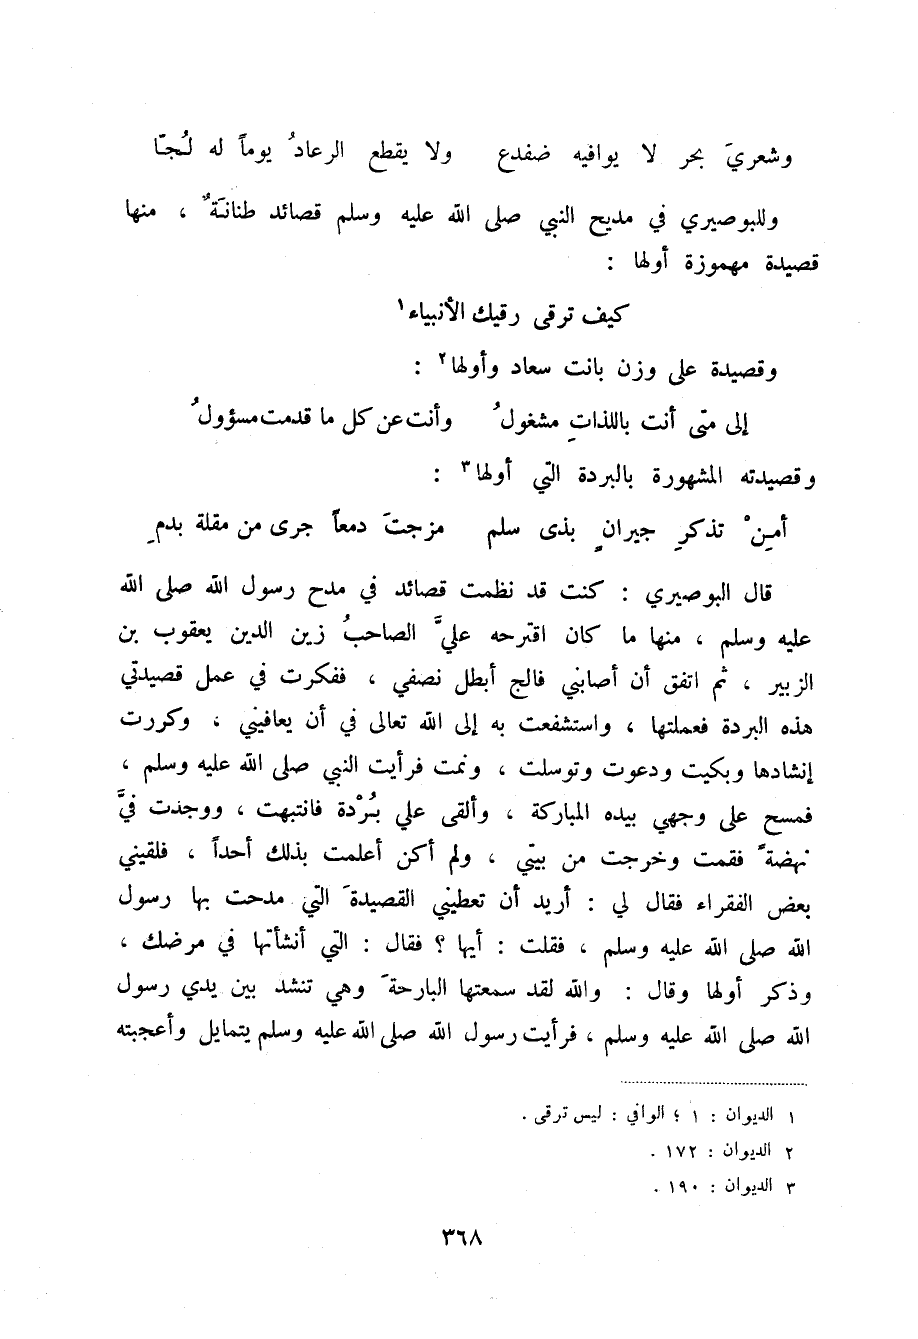 وشعريَ بحر لا يوافيه ضفدع ولا يقطع الرعادُ يوماً له لُجّا
وللبوصيري في مديح النبي صلى الله عليه وسلم قصائد طنانةٌ ، منها
قصيدة مهموزة أولها :
كيف ترقى رقيك الأنبياء١
وقصيدة على وزن بانت سعاد وأولها٢ :
إلى متى أنت باللذاتِ مشغولُ وأنت عن كل ما قدمت مسؤولُ
وقصيدته المشهورة بالبردة التي أولها٣ :
أمِنْ تذكرِ جيرانٍ بذى سلم مزجتَ دمعاً جرى من مقلة بدمِ
قال البوصيري : كنت قد نظمت قصائد في مدح رسول الله صلى الله
عليه وسلم ، منها ما كان اقترحه عليَّ الصاحبُ زين الدين يعقوب بن
الزبير ، ثم اتفق أن أصابني فالج أبطل نصفي ، ففكرت في عمل قصيدتي
هذه البردة فعملتها ، واستشفعت به إلى الله تعالى في أن يعافيني ، وكررت
إنشادها وبكيت ودعوت وتوسلت ، ونمت فرأيت النبي صلى الله عليه وسلم ،
فمسح على وجهي بيده المباركة ، وألقى علي بُرْدة فانتبهت ، ووجدت فيَّ
نهضةً فقمت وخرجت من بيتي ، ولم أكن أعلمت بذلك أحداً ، فلقيني
بعض الفقراء فقال لي : أريد أن تعطيني القصيدةَ التي مدحت بها رسول
الله صلى الله عليه وسلم ، فقلت : أيها ؟ فقال : التي أنشأتها في مرضك ،
وذكر أولها وقال : والله لقد سمعتها البارحةَ وهي تنشد بين يدي رسول
الله صلى الله عليه وسلم ، فرأيت رسول الله صلى الله عليه وسلم يتمايل وأعجبته
١ الديوان : ١ ؛ الوافي : ليس ترقى .
٢ الديوان : ١٧٢ .
٣ الديوان : ١٩٠ .
٣٦٨